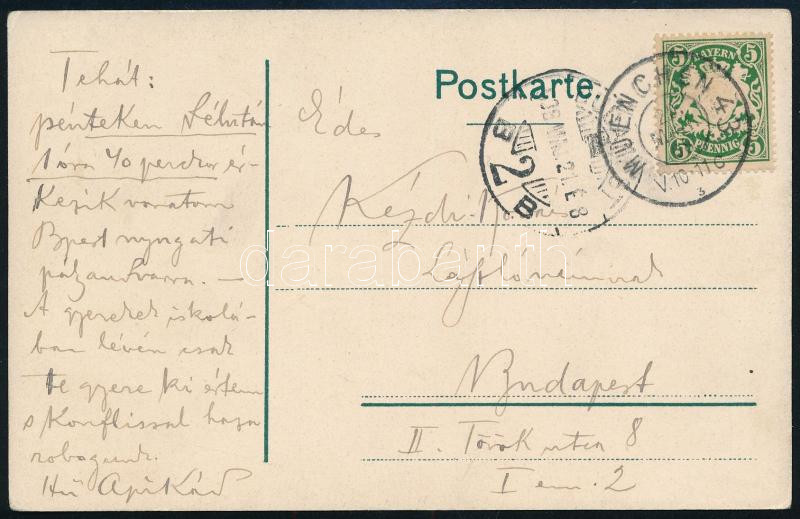 Tehát:
pénteken délután
1 óra 40 perckor ér-
kezik vonatom
Bpest nyugati
pályaudvarra. —
A gyerekek iskolá-
ban lévén csak
te gyere ki értem
s konflissal haza
robogunk.
Hű Apikád
Postkarte.
Édes
Kézdi-Kovács
Lászlónénak
Budapest
II. Török utca 8
I em. 2
BAYERN
5 5
5 PFENNIG 5
MUENCHEN
V.10-11
3
2
B
darabanth